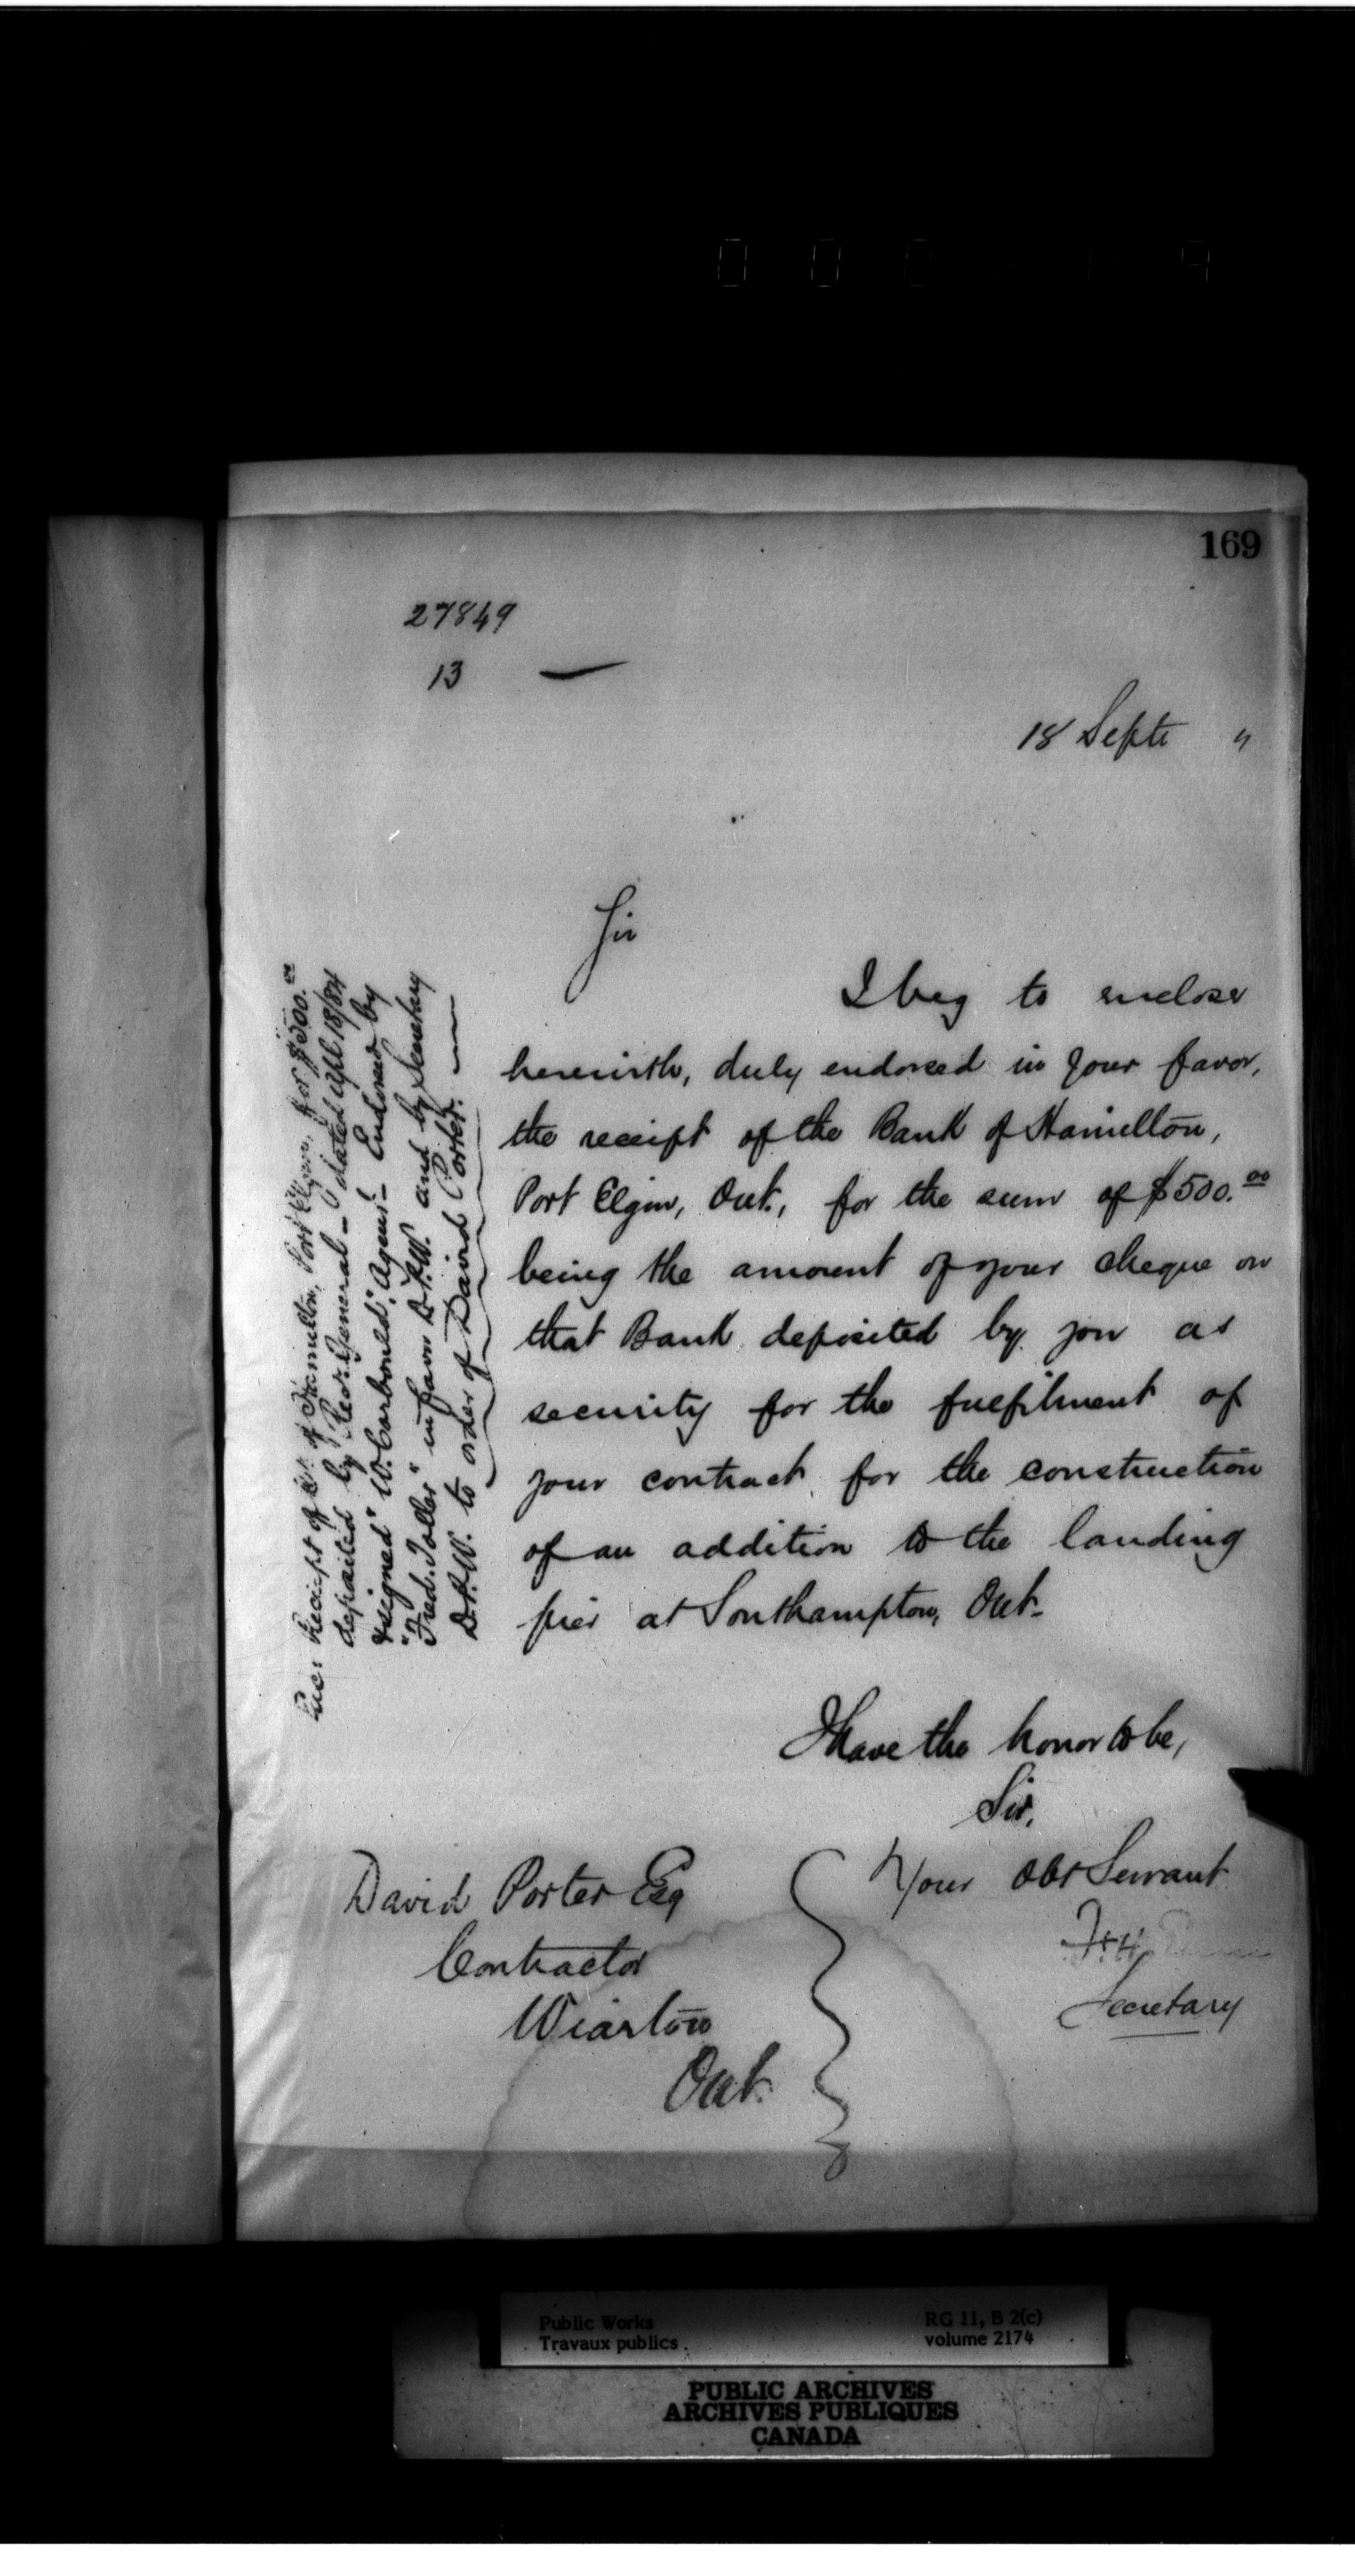 169
27849
13 —
18 Septr "
Sir
I beg to enclose
herewith, duly endorsed in your favor,
the receipt of the Bank of Hamilton,
Port Elgin, Ont., for the sum of $500.00
being the amount of your cheque on
that Bank deposited by you as
security for the fulfilment of
your contract for the construction
of an addition to the landing
pier at Southampton, Ont.
I have the honor to be,
Sir,
Your Obt Servant
Secretary
David Porter Esq
Contractor
Wiarton
Ont.
Enc: Receipt of Bk. of Hamilton, Port Elgin, for $500.00
deposited by Recr. General - dated Apl 18/84
& signed "W. Corbould, Agent" - Endorsed by
"Fred. Toller" in favor D.P.W. and by Secretary
D.P.W. to order of David Porter. —
Public Works
Travaux publics
RG 11, B 2(c)
volume 2174
PUBLIC ARCHIVES
ARCHIVES PUBLIQUES
CANADA